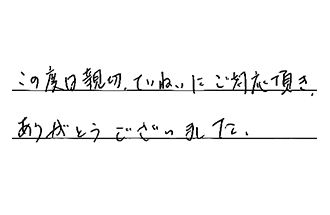 この度は親切、ていねいにご対応頂き、
ありがとうございました。